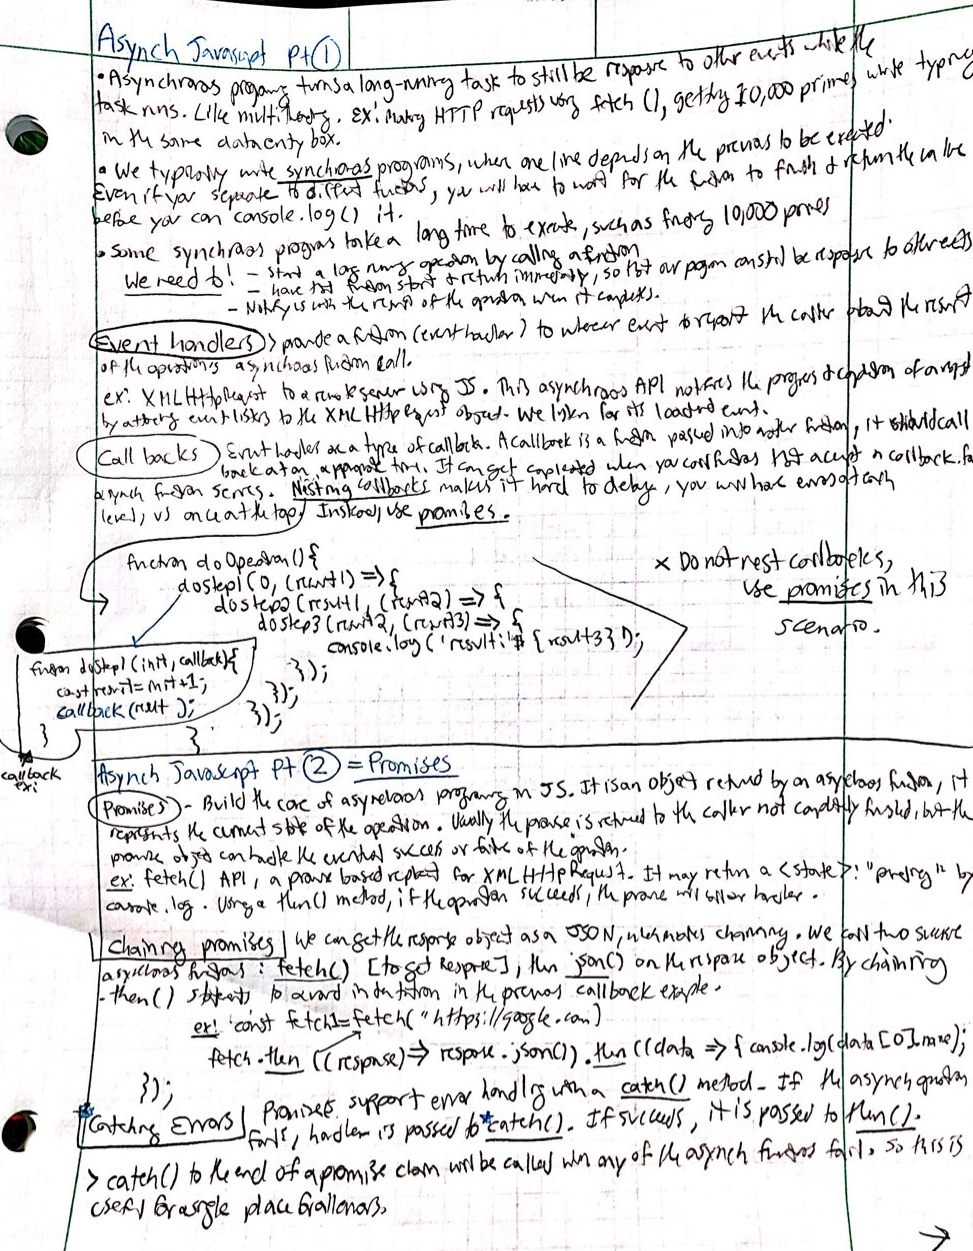 Asynch Javascript Pt ①
• Asynchronous programing turns a long-running task to still be response to other events while the
task runs. Like multithreading. Ex: making HTTP requests using fetch (), getting 10,000 primes while typing
in the same data entry box.
• We typically write synchronous programs, where one line depends on the previous to be executed.
Even if you separate to different functions, you will have to wait for the function to finish & return the value
before you can console.log() it.
• Some synchronous programs take a long time to execute, such as finding 10,000 primes
We need to! - Start a long running operation by calling a function
- have that function start & return immediately, so that our program can still be response to other events
- Notify us with the result of the operation when it completes.
Event handlers > provide a function (event handler) to whatever event to report the caller about the result
of the operation's asynchronous function call.
ex: XMLHttpRequest to a remote server using JS. This asynchronous API notifies the progress & completion of a request
by attaching event listeners to the XMLHttpRequest object. We listen for its loadend event.
Call backs Event handler are a type of callback. A callback is a function passed into another function, it should call
back at an appropriate time. It can get complicated when you call functions that accept a callback.
asynch function series. Nesting callbacks makes it hard to debug, you will have errors at each
level, vs once at the top. Instead, use promises.
function doOperation() {
dostep1(0, (result1) => {
dostep2(result1, (result2) => {
dostep3(result2, (result3) => {
console.log('result:'${result3});
});
});
});
}
× Do not nest callbacks,
use promises in this
scenario.
function dostep1(init, callback){
const result = init+1;
callback(result);
}
callback
ex:
Asynch Javascript Pt ② = Promises
Promises - Build the core of asynchronous programing in JS. It is an object returned by an asynchronous function, it
represents the current state of the operation. Usually the promise is returned to the caller not completely finished, but the
promise object can handle the eventual success or failure of the operation.
ex: fetch() API, a promise based replacement for XMLHttpRequest. It may return a <state>: "pending" by
console.log. Using a then() method, if the operation succeeds, the promise will call our handler.
Chaining promises We can get the response object as a JSON, which makes chaining. We call two successive
asynchronous functions: fetch() [to get Response], then json() on the response object. By chaining
.then() statements to avoid indentation in the previous callback example.
ex: const fetch1 = fetch("https://google.com)
fetch.then ((response) => response.json()).then((data => { console.log(data[0].name);
});
Catching Errors Promises support error handling with a catch() method. If the asynch operation
fails, handler is passed to *catch(). If succeeds, it is passed to then().
> catch() to the end of a promise chain will be called when any of the asynch functions fail. So this is
useful for a single place for all errors.
→